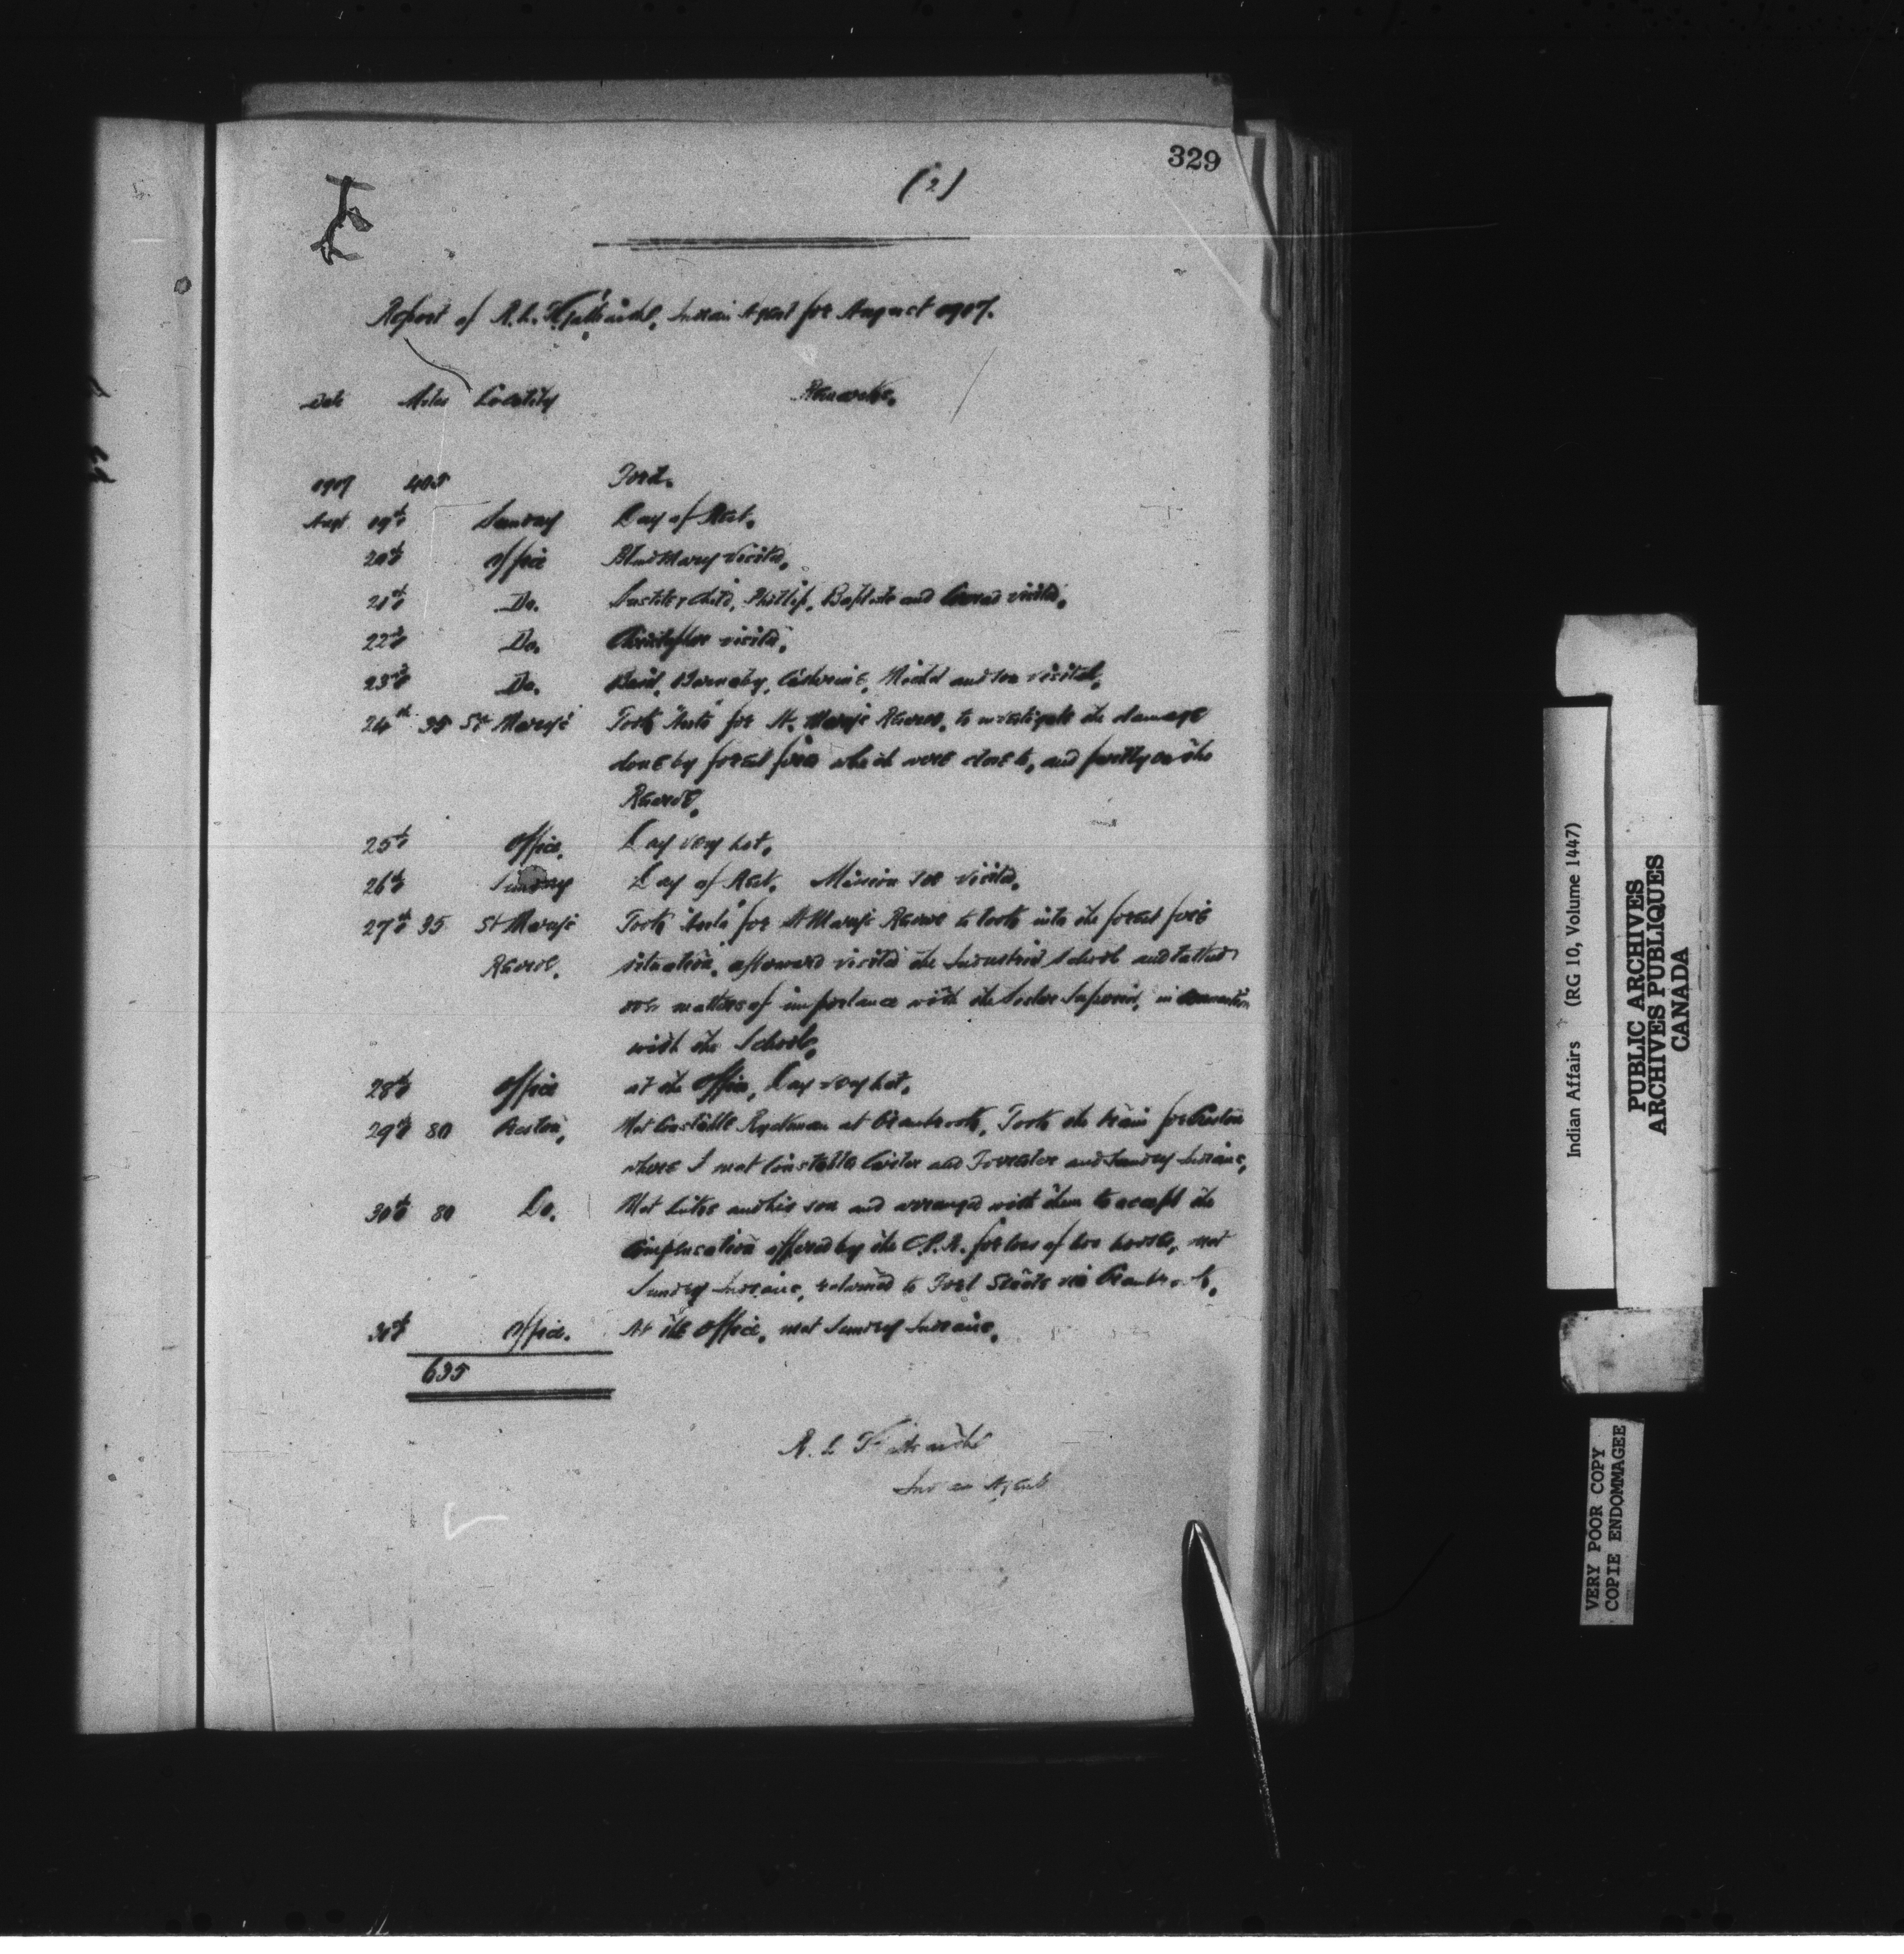 329
(2)
Report of R. L. T. Galbraith, Indian Agent for August 1917.
Date Miles Locality Remarks.
1917 405 Ford.
Augt 19th Sunday Day of Rest.
20th Office Blind Mary visited.
21st Do. Phillip, Baptiste and Conrad visited.
22d Do. Christopher visited.
23d Do. Basil, Barnaby, Catherine, Michel and son visited.
24th 35 St Mary's Took "Auto" for St. Mary's Reserve, to investigate the damage
done by forest fires which were close to, and partly on the
Reserve.
25th Office. Day very hot.
26th Sunday Day of Rest. Mission Joe visited.
27th 35 St Mary's Took "Auto" for St Mary's Reserve to look into the forest fire
Reserve. situation, afterward visited the Industrial School and talked
over matters of importance with the Sister Superior, in connection
with the School.
28th Office at the Office, Day very hot.
29th 80 Creston, Met Constable Ryckman at Cranbrook, Took the train for Creston
where I met Constables and Forester and Sundry Indians,
30th 80 Do. Met Luke and his son and arranged with them to accept the
compensation offered by the C.P.R. for loss of two horses, met
Sundry Indians, returned to Fort Steele via Cranbrook.
31st Office. At the Office, met Sundry Indians.
635
R. L. T. Galbraith
Indian Agent
Indian Affairs (RG 10, Volume 1447)
PUBLIC ARCHIVES
ARCHIVES PUBLIQUES
CANADA
VERY POOR COPY
COPIE ENDOMMAGEE